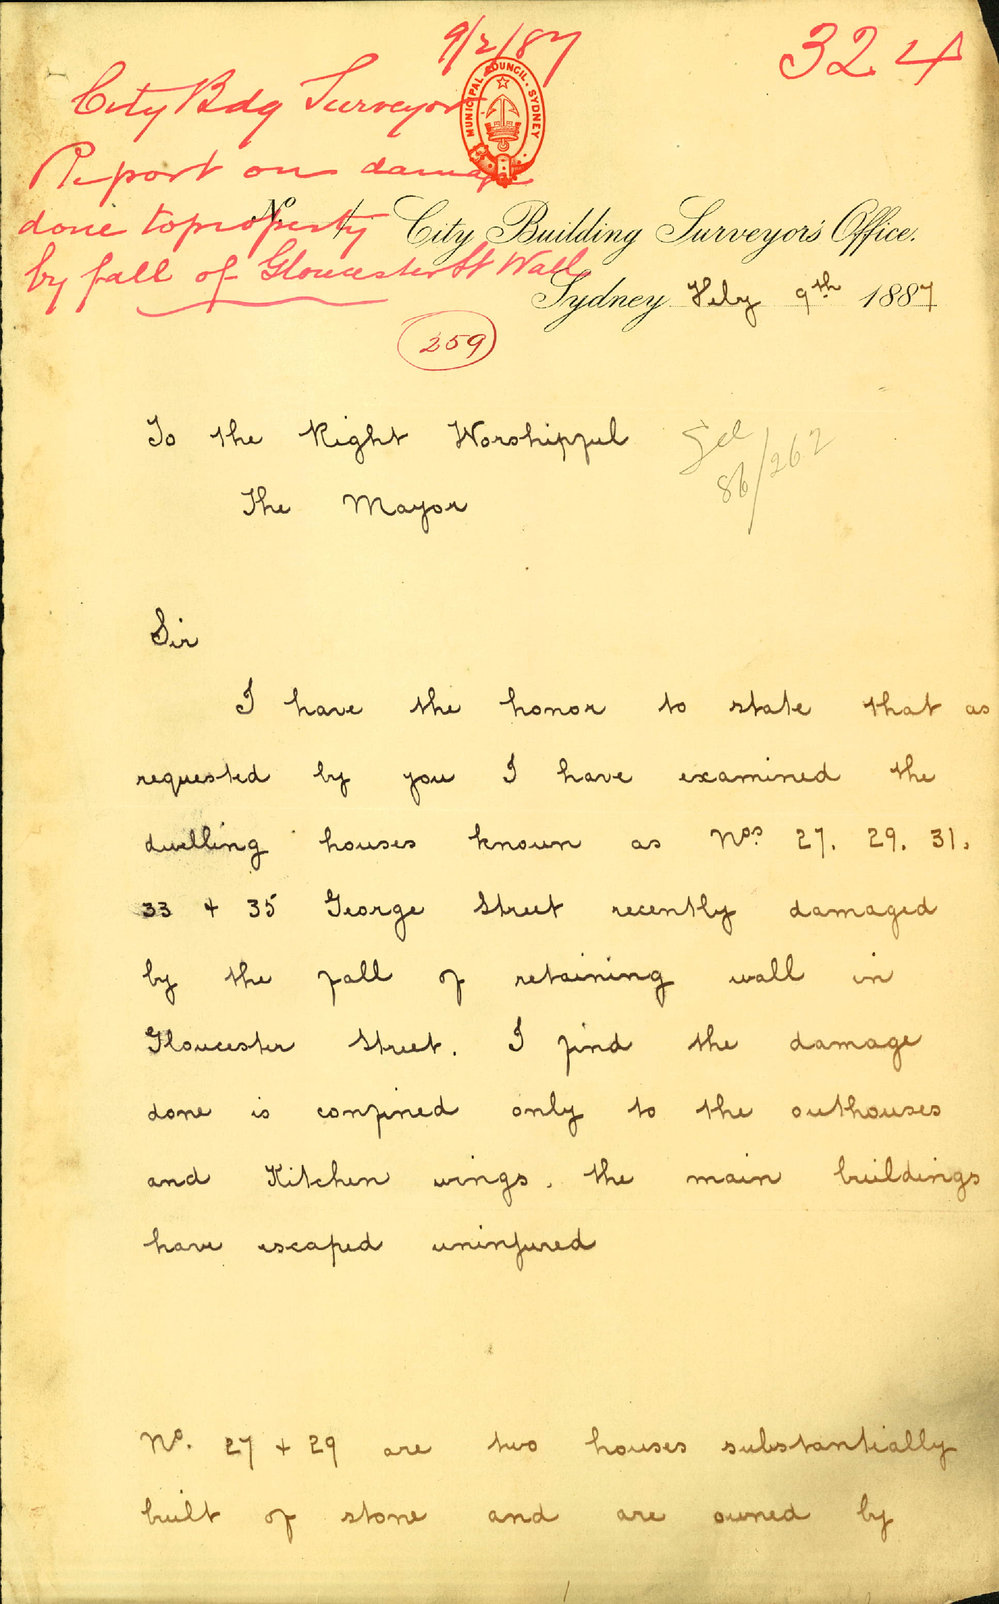 9/2/87
324
City Bdg Surveyor
MUNICIPAL COUNCIL. SYDNEY
Report on damage
done to property
by fall of Gloucester St Wall
No. City Building Surveyor's Office.
Sydney Feby 9th 1887
259
To the Right Worshipful
See
86/262
The Mayor
Sir
I have the honor to state that as
requested by you I have examined the
dwelling houses known as Nos. 27. 29. 31.
33 + 35 George Street recently damaged
by the fall of retaining wall in
Gloucester Street. I find the damage
done is confined only to the outhouses
and Kitchen wings. the main buildings
have escaped uninjured
No. 27 + 29 are two houses substantially
built of stone and are owned by